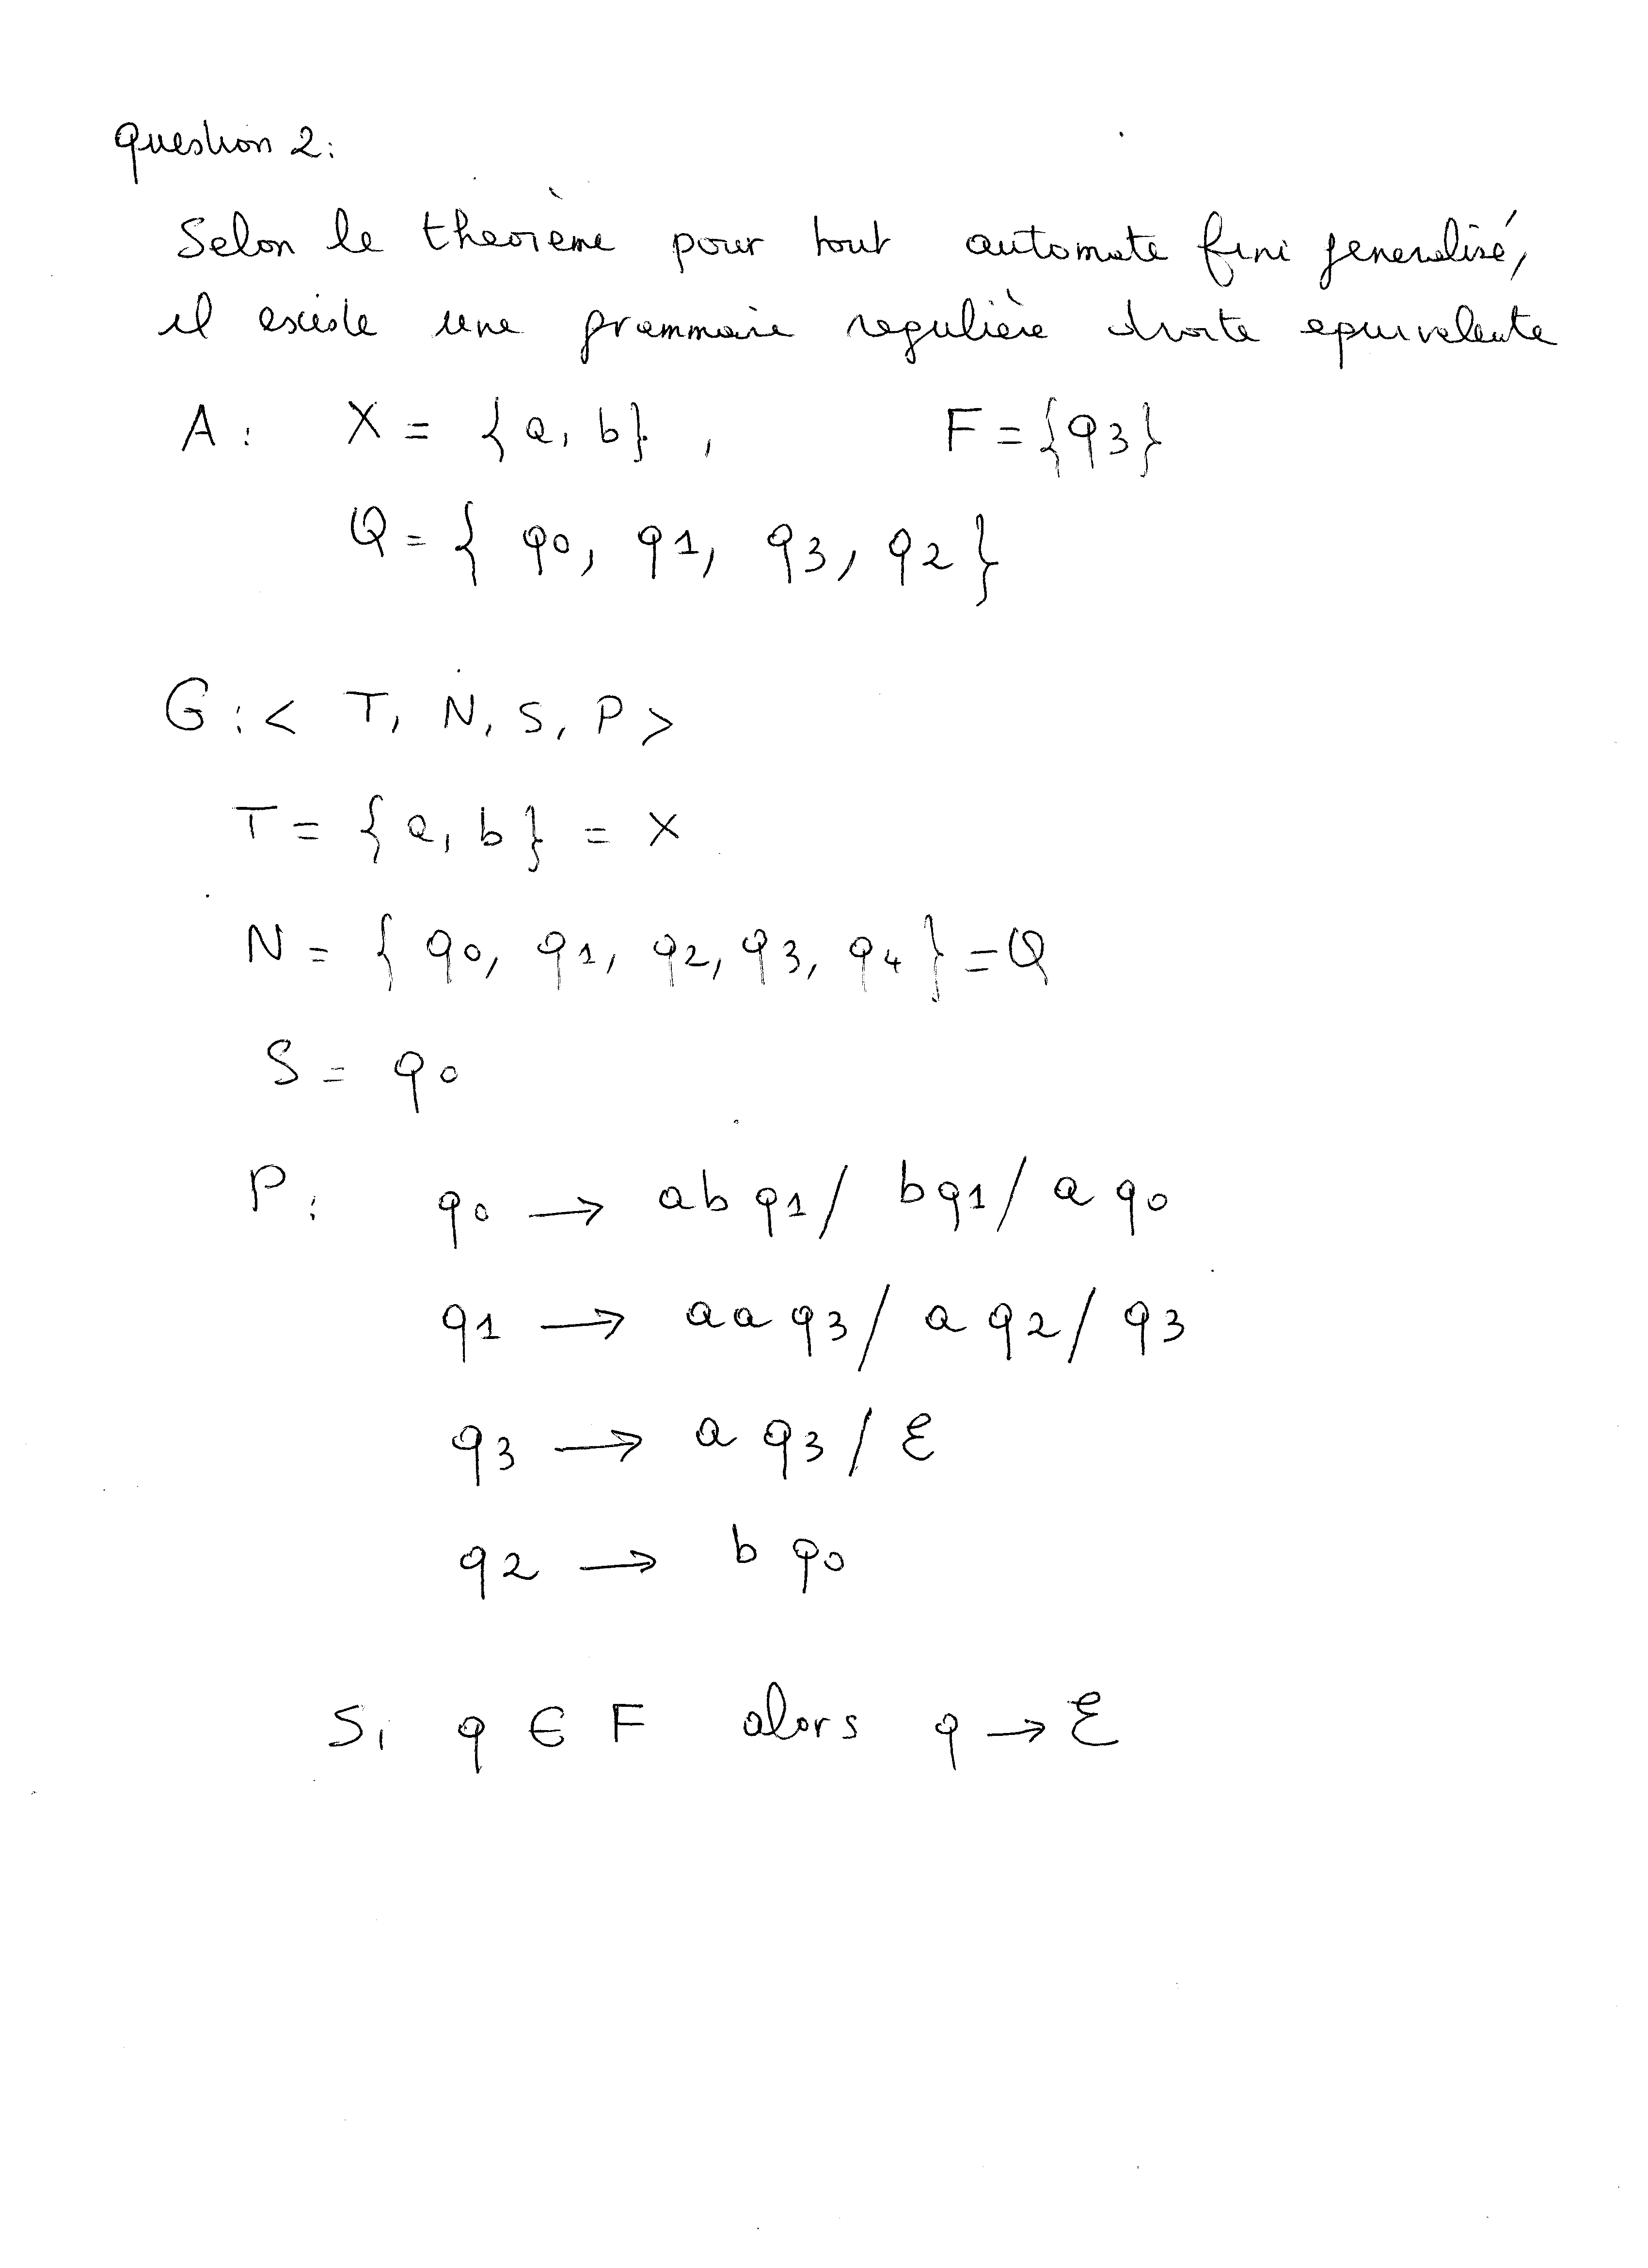 question 2:
Selon le theorème pour tout automate fini generalisé,
il existe une grammaire regulière droite equivalente
A : X = {a, b} , F = {q3}
Q = { q0, q1, q3, q2 }
G : < T, N, S, P >
T = { a, b } = X
N = { q0, q1, q2, q3, q4 } = Q
S = q0
P : q0 → ab q1 / b q1 / a q0
q1 → aa q3 / a q2 / q3
q3 → a q3 / ε
q2 → b q0
Si q ∈ F alors q → ε